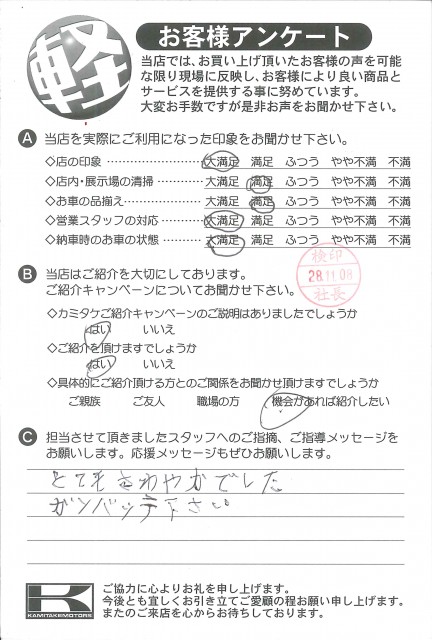 軽
お客様アンケート
当店では、お買い上げ頂いたお客様の声を可能
な限り現場に反映し、お客様により良い商品と
サービスを提供する事に努めています。
大変お手数ですが是非お声をお聞かせ下さい。
A 当店を実際にご利用になった印象をお聞かせ下さい。
◇店の印象 ………………… 大満足 満足 ふつう やや不満 不満
◇店内・展示場の清掃……… 大満足 満足 ふつう やや不満 不満
◇お車の品揃え…………… 大満足 満足 ふつう やや不満 不満
◇営業スタッフの対応……… 大満足 満足 ふつう やや不満 不満
◇納車時のお車の状態……… 大満足 満足 ふつう やや不満 不満
B 当店はご紹介を大切にしております。
ご紹介キャンペーンについてお聞かせ下さい。
検印
28.11.08
社長
◇カミタケご紹介キャンペーンのご説明はありましたでしょうか
はい いいえ
◇ご紹介を頂けますでしょうか
はい いいえ
◇具体的にご紹介頂ける方とのご関係をお聞かせ頂けますでしょうか
ご親族 ご友人 職場の方 機会があれば紹介したい
C 担当させて頂きましたスタッフへのご指摘、ご指導メッセージを
お願いします。応援メッセージもぜひお願いします。
とてもさわやかでした
ガンバッテ下さい
K
KAMITAKEMOTORS
ご協力に心よりお礼を申し上げます。
今後とも宜しくお引き立てご愛顧の程お願い申し上げます。
またのご来店を心からお待ちしております。